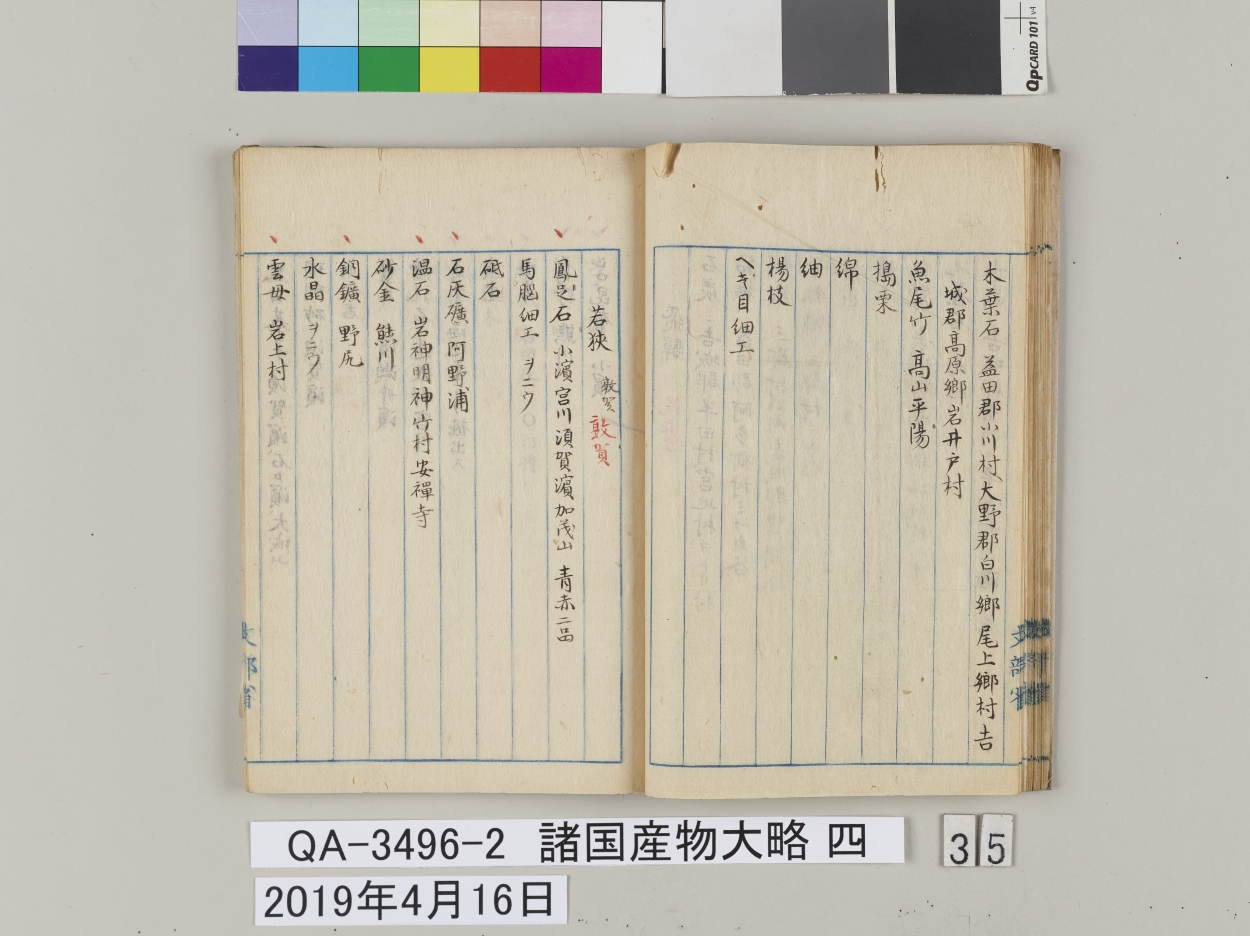 QPCARD 101 v4
木葉石 益田郡小川村、大野郡白川郷尾上郷村吉
城郡高原郷岩井戸村
魚尾竹 高山平陽
搗栗
綿
紬
楊枝
ヘギ目細工
若狹 敦賀 敦賀
鳳足石 小濱宮川須賀濱加茂山 青赤二品
馬脳細工 ヲニウ
砥石
石灰礦 阿野浦
温石 岩神明神 村安禪寺
砂金 熊川
銅鑛 野尻
水晶 ヲニウ
雲母 岩上村
文部省
文部省
QA-3496-2 諸国産物大略 四
35
2019年4月16日